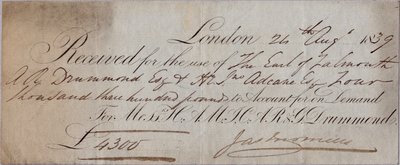 London 26th Augt 1839
Received for the use of The Earl of Falmouth
A R Drummond Esq & Adeane Esq Four
thousand three hundred pounds to Account for on Demand
For Messrs H. A. M. H. A. R. & G. Drummond
£ 4300